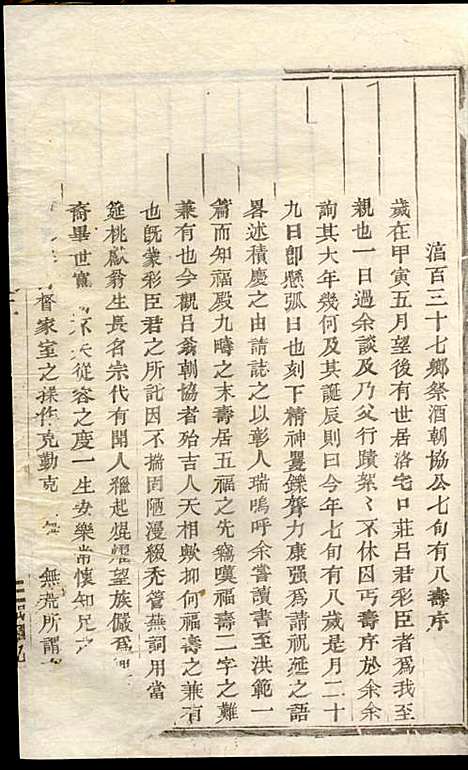 㵎百三十七鄉祭酒朝協公七旬有八壽序
歲在甲寅五月望後有世居洛宅口莊吕君彩臣者為我至
親也一日過余談及乃父行蹟絮〻不休因丐壽序於余余
詢其大年幾何及其誕辰則曰今年七旬有八歲是月二十
九日卽懸弧日也刻下精神矍鑠膂力康强為請祝延之語
畧述積慶之由請誌之以彰人瑞嗚呼余嘗讀書至洪範一
篇而知福殿九疇之末壽居五福之先竊嘆福壽二字之難
兼有也今觀吕翁朝協者殆吉人天相歟抑何福壽之兼有
也既蒙彩臣君之所託因不揣固陋漫綴禿管蕪詞用當
筵桃獻翁生長名宗代有聞人雖起焜燿望族儼為
裔畢世寬 不失從容之度一生安樂常懷知足之
督家室之操作克勤克 無荒所謂